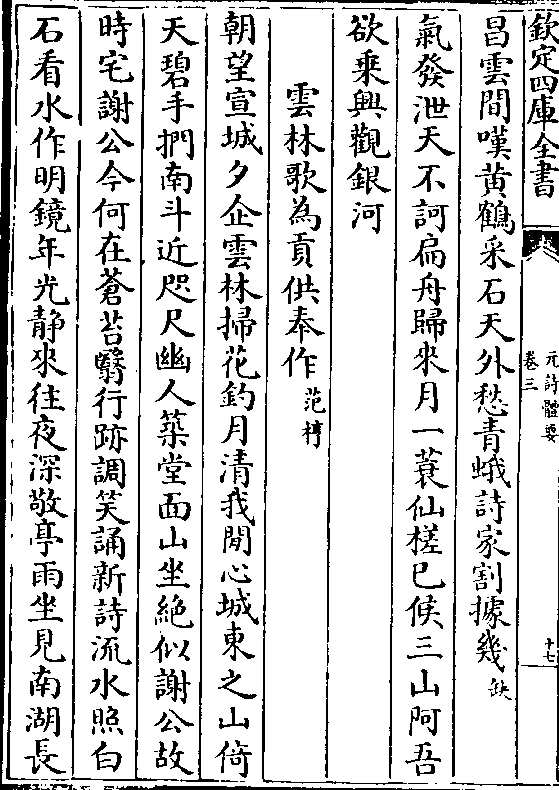 欽定四庫全書
元詩體要
卷三
十七
昌雲間嘆黄鶴采石天外愁青蛾詩家割據幾缺
氣發泄天不訶扁舟歸來月一蓑仙槎已候三山阿吾
欲乗興觀銀河
雲林歌為貢供奉作范梈
朝望宣城夕企雲林掃花釣月清我閒心城東之山倚
天碧手捫南斗近咫尺幽人築堂面山坐絶似謝公故
時宅謝公今何在蒼苔翳行跡調笑誦新詩流水照白
石看水作明鏡年光静來往夜深敬亭雨坐見南湖長